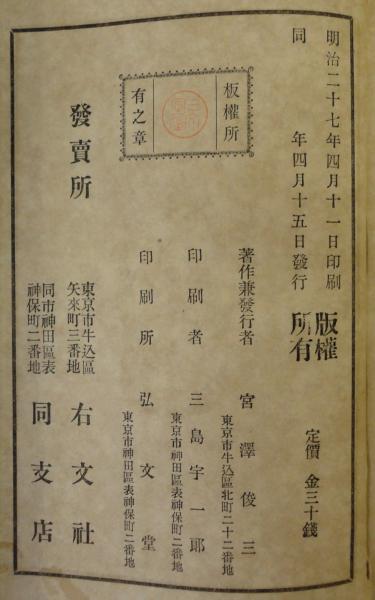 明治二十七年四月十一日印刷
同 年四月十五日發行
版權所有
定價 金三十錢
板權所
有之章
著作兼發行者 宮澤俊三
東京市牛込區北町二十二番地
印刷者 三島宇一郎
東京市神田區表神保町二番地
印刷所 弘文堂
東京市神田區表神保町二番地
發賣所
東京市牛込區矢來町三番地 右文社
同市神田區表神保町二番地 同支店